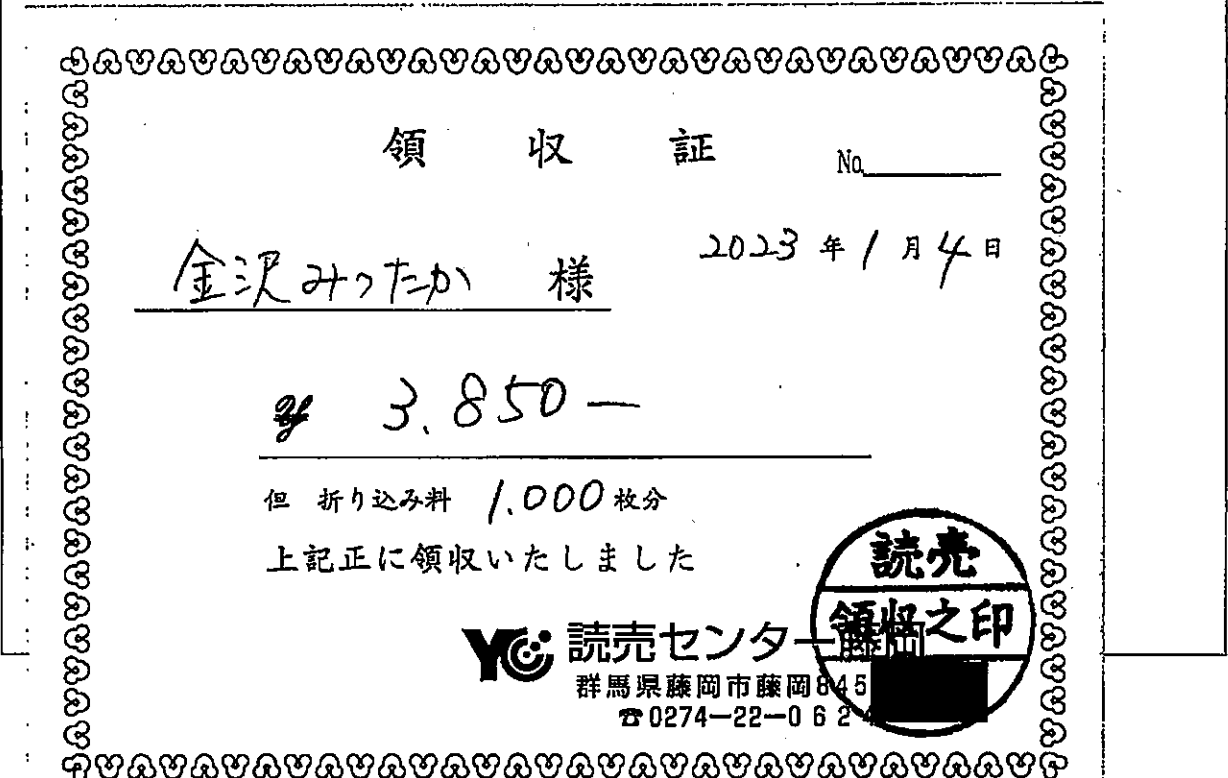 領収証 No.
2023年1月4日
金沢みつたか 様
¥ 3.850—
但 折り込み料 1.000枚分
上記正に領収いたしました
読売
領収之印
YC 読売センター藤岡
群馬県藤岡市藤岡845
☎0274-22-0624